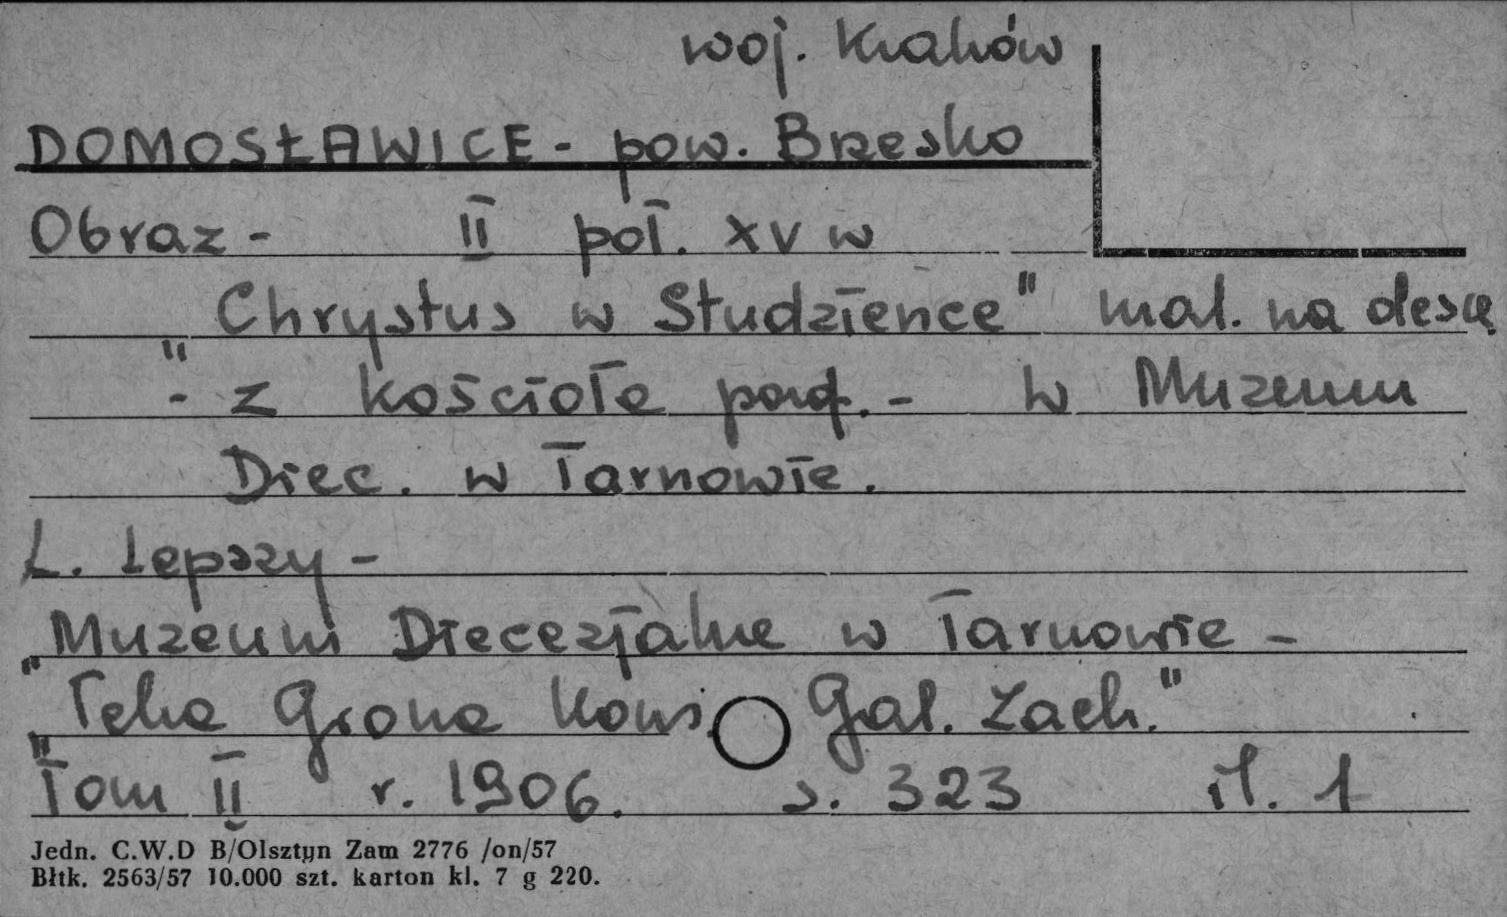 woj. Kraków
DOMOSŁAWICE - pow. Brzesko
Obraz - II poł. XV w
"Chrystus w Studzience" mal. na desce
- z kościoła par. - w Muzeum
Diec. w Tarnowie.
L. Lepszy -
"Muzeum Diecezjalne w Tarnowie -
"Teka Grona Kons. Gal. Zach."
Tom II r. 1906. s. 323 il. 1
Jedn. C.W.D B/Olsztyn Zam 2776 /on/57
Błtk. 2563/57 10.000 szt. karton kl. 7 g 220.